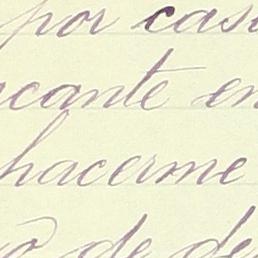 por cas
cante en
hacerme
de de